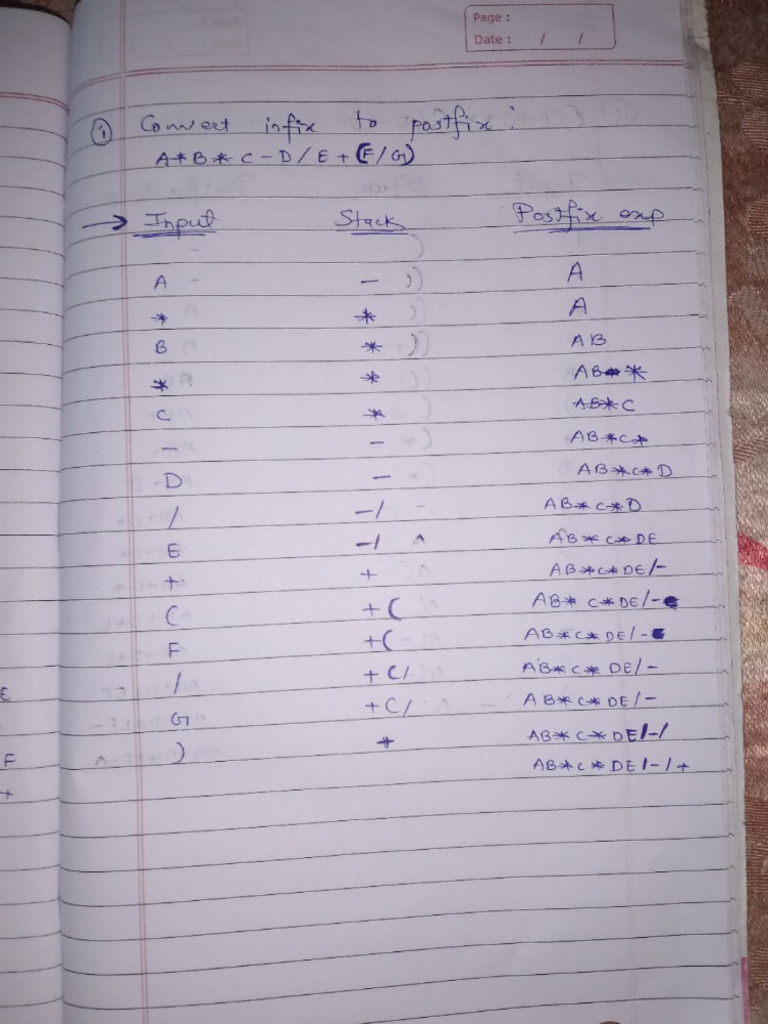 Page :
Date : / /
① Convert infix to postfix :
A*B*C-D/E+(F/G)
→ Input Stack Postfix exp
A - A
* * A
B * AB
* * AB*
C * AB*C
- - AB*C*
D - AB*C*D
/ -/ AB*C*D
E -/ AB*C*DE
+ + AB*C*DE/-
( +( AB*C*DE/-
F +( AB*C*DE/-
/ +(/ AB*C*DE/-
G +(/ AB*C*DE/-
) + AB*C*DE/-/
AB*C*DE/-/+
E
F
+